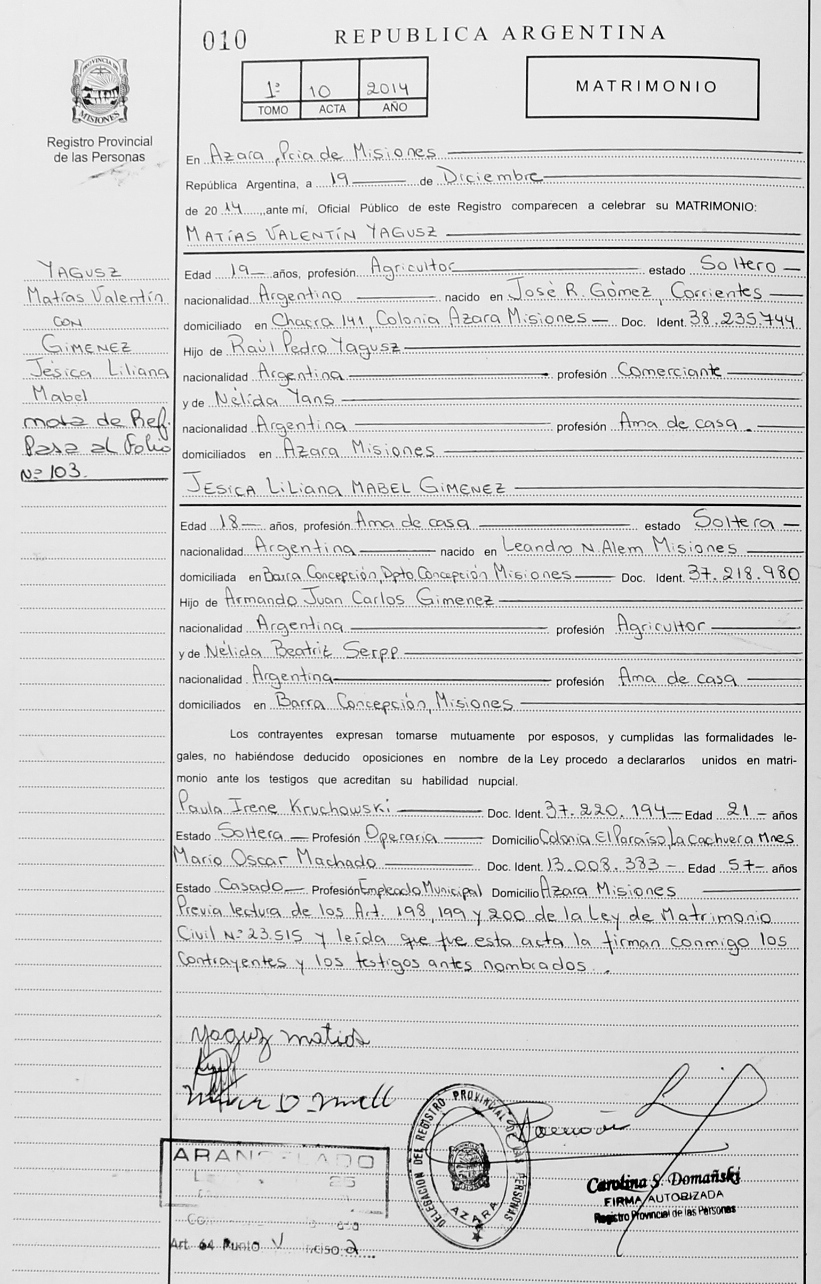 010
REPUBLICA ARGENTINA
PROVINCIA DE
MISIONES
Registro Provincial
de las Personas
1º 10 2014
TOMO ACTA AÑO
MATRIMONIO
En Azara, Pcia de Misiones
República Argentina, a 19 de Diciembre
de 2014, ante mí, Oficial Público de este Registro comparecen a celebrar su MATRIMONIO:
MATÍAS VALENTÍN YAGUSZ
YAGUSZ
Matías Valentín
CON
GIMENEZ
Jésica Liliana
Mabel
nota de Ref.
Pasa al Folio
Nº 103.
Edad 19 años, profesión Agricultor estado Soltero
nacionalidad Argentino nacido en José R. Gómez, Corrientes
domiciliado en Chacra 141, Colonia Azara Misiones Doc. Ident. 38.235.744
Hijo de Raúl Pedro Yagusz
nacionalidad Argentina profesión Comerciante
y de Nélida Yans
nacionalidad Argentina profesión Ama de casa.
domiciliados en Azara Misiones
JESICA LILIANA MABEL GIMENEZ
Edad 18 años, profesión Ama de casa estado Soltera
nacionalidad Argentina nacido en Leandro N. Alem Misiones
domiciliada en Barra Concepción, Dpto. Concepción Misiones Doc. Ident. 37.218.980
Hijo de Armando Juan Carlos Gimenez
nacionalidad Argentina profesión Agricultor
y de Nélida Beatriz Serpp
nacionalidad Argentina profesión Ama de casa
domiciliados en Barra Concepción, Misiones
Los contrayentes expresan tomarse mutuamente por esposos, y cumplidas las formalidades le-
gales, no habiéndose deducido oposiciones en nombre de la Ley procedo a declararlos unidos en matri-
monio ante los testigos que acreditan su habilidad nupcial.
Paula Irene Kruchowski Doc. Ident. 37.220.194 Edad 21 años
Estado Soltera Profesión Operaria Domicilio Colonia El Paraíso, La Cachuera Mnes
Mario Oscar Machado Doc. Ident. 13.008.383 Edad 57 años
Estado Casado Profesión Empleado Municipal Domicilio Azara Misiones
Previa lectura de los Art. 198, 199 y 200 de la Ley de Matrimonio
Civil Nº 23.515 y leída que fue esta acta la firman conmigo los
Contrayentes y los testigos antes nombrados.
Yaguz matias
DELEGACION DEL REGISTRO PROVINCIAL DE LAS PERSONAS
AZARA
Carolina S. Domañski
FIRMA AUTORIZADA
Registro Provincial de las Personas
ARANCELADO
Art. 64 Punto V inciso a